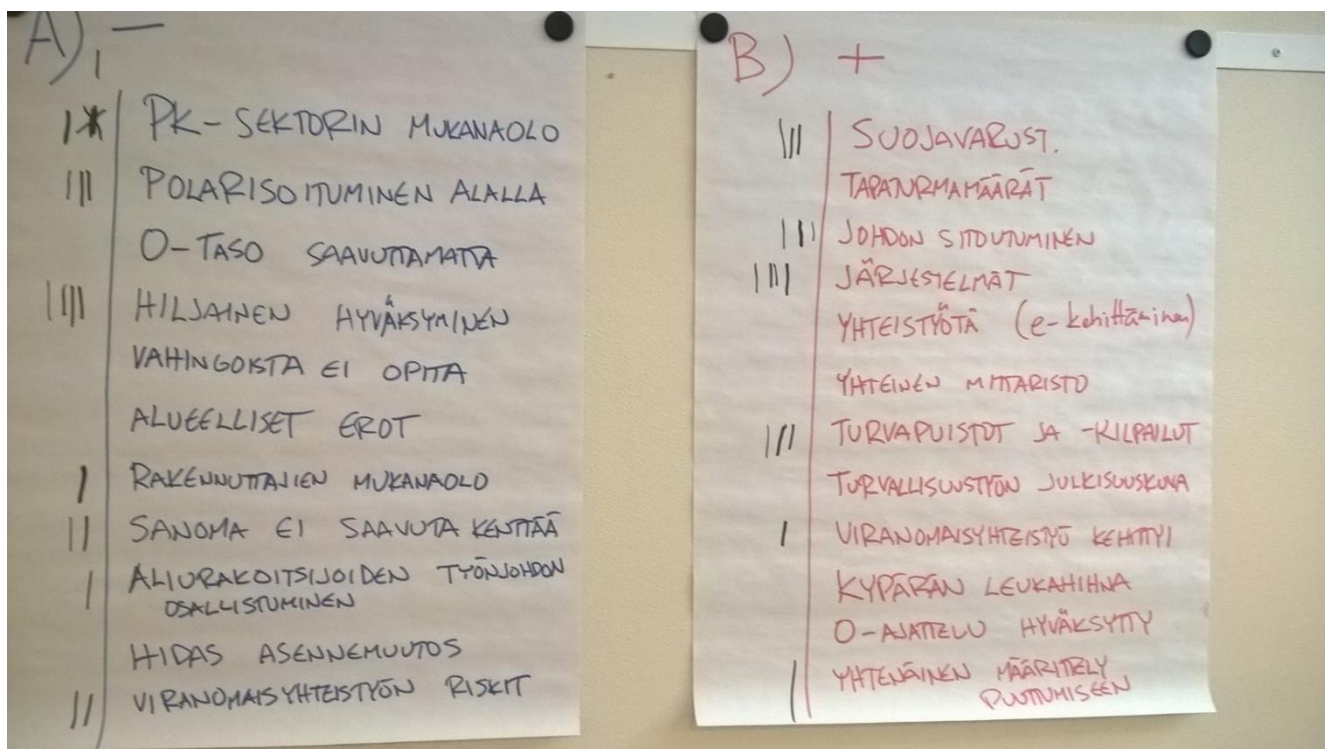 A) –
PK-SEKTORIN MUKANAOLO
POLARISOITUMINEN ALALLA
0-TASO SAAVUTTAMATTA
HILJAINEN HYVÄKSYMINEN
VAHINGOISTA EI OPITA
ALUEELLISET EROT
RAKENNUTTAJIEN MUKANAOLO
SANOMA EI SAAVUTA KENTTÄÄ
ALIURAKOITSIJOIDEN TYÖNJOHDON
OSALLISTUMINEN
HIDAS ASENNEMUUTOS
VIRANOMAISYHTEISTYÖN RISKIT
B) +
SUOJAVARUST.
TAPATURMAMÄÄRÄT
JOHDON SITOUTUMINEN
JÄRJESTELMÄT
YHTEISTYÖTÄ (e-kehittäminen)
YHTEINEN MITTARISTO
TURVAPUISTOT JA -KILPAILUT
TURVALLISUUSTYÖN JULKISUUSKUVA
VIRANOMAISYHTEISTYÖ KEHITTYI
KYPÄRÄN LEUKAHIHNA
0-AJATTELU HYVÄKSYTTY
YHTENÄINEN MÄÄRITTELY
PUUTTUMISEEN